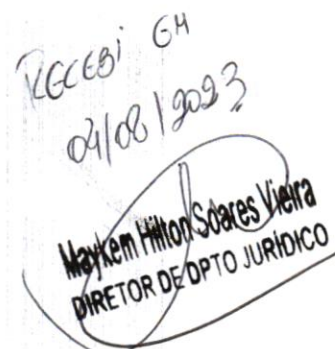 RECEBi EM
04/08/2023
Maykem Hilton Soares Vieira
DIRETOR DE DPTO JURÍDICO